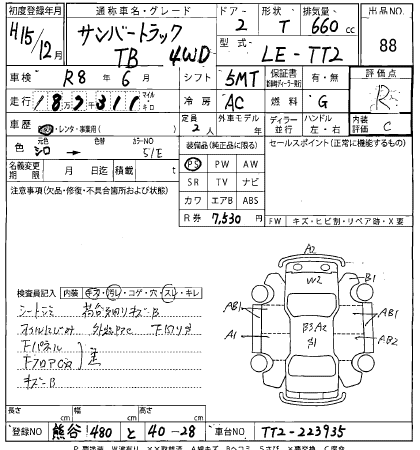 初度登録年月 通称車名・グレード ドアー 形状 排気量 出品NO
H15/12月 サンバートラック TB 4WD 2 T 660cc 88
型式 LE-TT2
車検 R8年6月 シフト 5MT 保証書 有・無 評価点 R
走行 マイル キロ 冷房 AC 燃料 G
車歴 レンタ・事業用( ) 定員 2人 外車モデル 年 ディーラー 並行 ハンドル 左・右 内装評価 C
色 シロ → 色替 カラーNO 51E 装備品(純正品に限る) セールスポイント(正常に機能するもの)
PS PW AW
名義変更期限 月 日迄 積載 t SR TV ナビ
注意事項(欠品・修復・不具合箇所および状態) カワ エアB ABS
R券 7,530円 FW キズ・ヒビ割・リペア跡・X要
検査員記入 内装 キズ・汚レ・コゲ・穴・スレ・キレ
A2
W2
B1
AB1
AB1
A1
AB2
B3 A2
シートシミ 荷台多凹リキズB
オイルにじみ 下回りサビ
下パネル
キズーB
長さ cm 幅 cm 高さ cm
登録NO 熊谷 480 と 40-28 車台NO TT2-223935